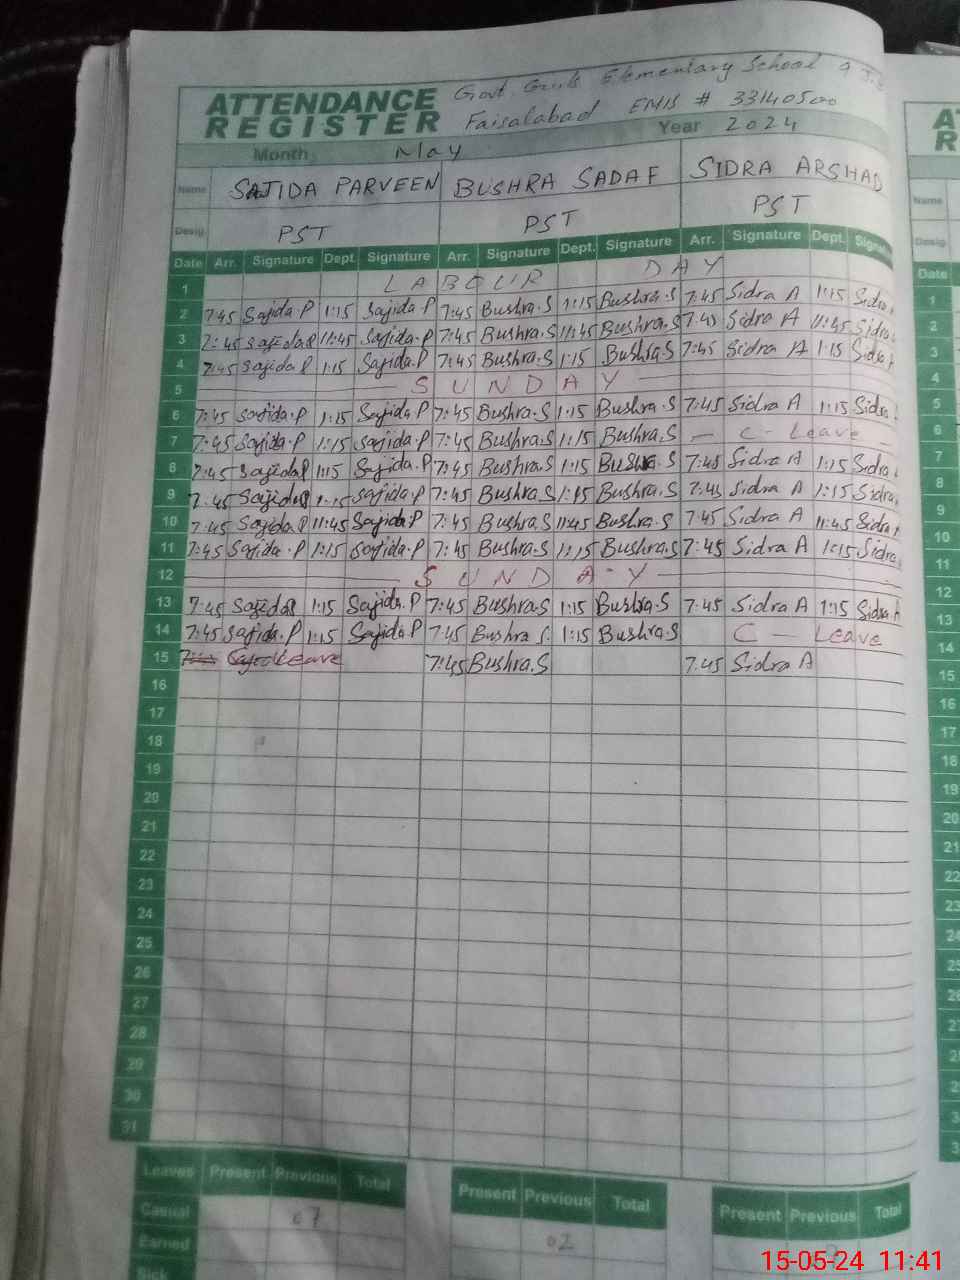 ATTENDANCE Govt. Girls Elementary School 9
REGISTER Faisalabad EMIS # 33140500
Month May Year 2024
Name SAJIDA PARVEEN BUSHRA SADAF SIDRA ARSHAD
Desig. PST PST PST
Date Arr. Signature Dept. Signature Arr. Signature Dept. Signature Arr. Signature Dept. Signatu
1 LABOUR DAY
2 7:45 Sajida P 1:15 Sajida P 7:45 Bushra.S 1:15 Bushra.S 7:45 Sidra A 1:15 Sidra
3 7:45 Sajida P 11:45 Sajida.P 7:45 Bushra.S 11:45 Bushra.S 7:45 Sidra A 11:45 Sidra
4 7:45 Sajida P 1:15 Sajida.P 7:45 Bushra.S 1:15 Bushra.S 7:45 Sidra A 1:15 Sidra
5 SUNDAY
6 7:45 Sajida.P 1:15 Sajida.P 7:45 Bushra.S 1:15 Bushra.S 7:45 Sidra A 1:15 Sidra
7 7:45 Sajida.P 1:15 Sajida.P 7:45 Bushra.S 1:15 Bushra.S - C - Leave -
8 7:45 Sajida P 1:15 Sajida.P 7:45 Bushra.S 1:15 Bushra.S 7:45 Sidra A 1:15 Sidra
9 7:45 Sajida P 1:15 Sajida.P 7:45 Bushra.S 1:15 Bushra.S 7:45 Sidra A 1:15 Sidra
10 7:45 Sajida P 11:45 Sajida P 7:45 Bushra.S 11:45 Bushra.S 7:45 Sidra A 11:45 Sidra
11 7:45 Sajida.P 1:15 Sajida.P 7:45 Bushra.S 1:15 Bushra.S 7:45 Sidra A 1:15 Sidra
12 SUNDAY
13 7:45 Sajida P 1:15 Sajida.P 7:45 Bushra.S 1:15 Bushra.S 7:45 Sidra A 1:15 Sidra A
14 7:45 Sajida.P 1:15 Sajida P 7:45 Bushra S. 1:15 Bushra.S C - Leave
15 Leave 7:45 Bushra.S 7:45 Sidra A
16
17
18
19
20
21
22
23
24
25
26
27
28
29
30
31
Leaves Present Previous Total Present Previous Total Present Previous Total
Casual 07
Earned 02
Sick
A
R
Name
Desig.
Date
1
2
3
4
5
6
7
8
9
10
11
12
13
14
15
16
17
18
19
20
21
22
23
24
15-05-24 11:41